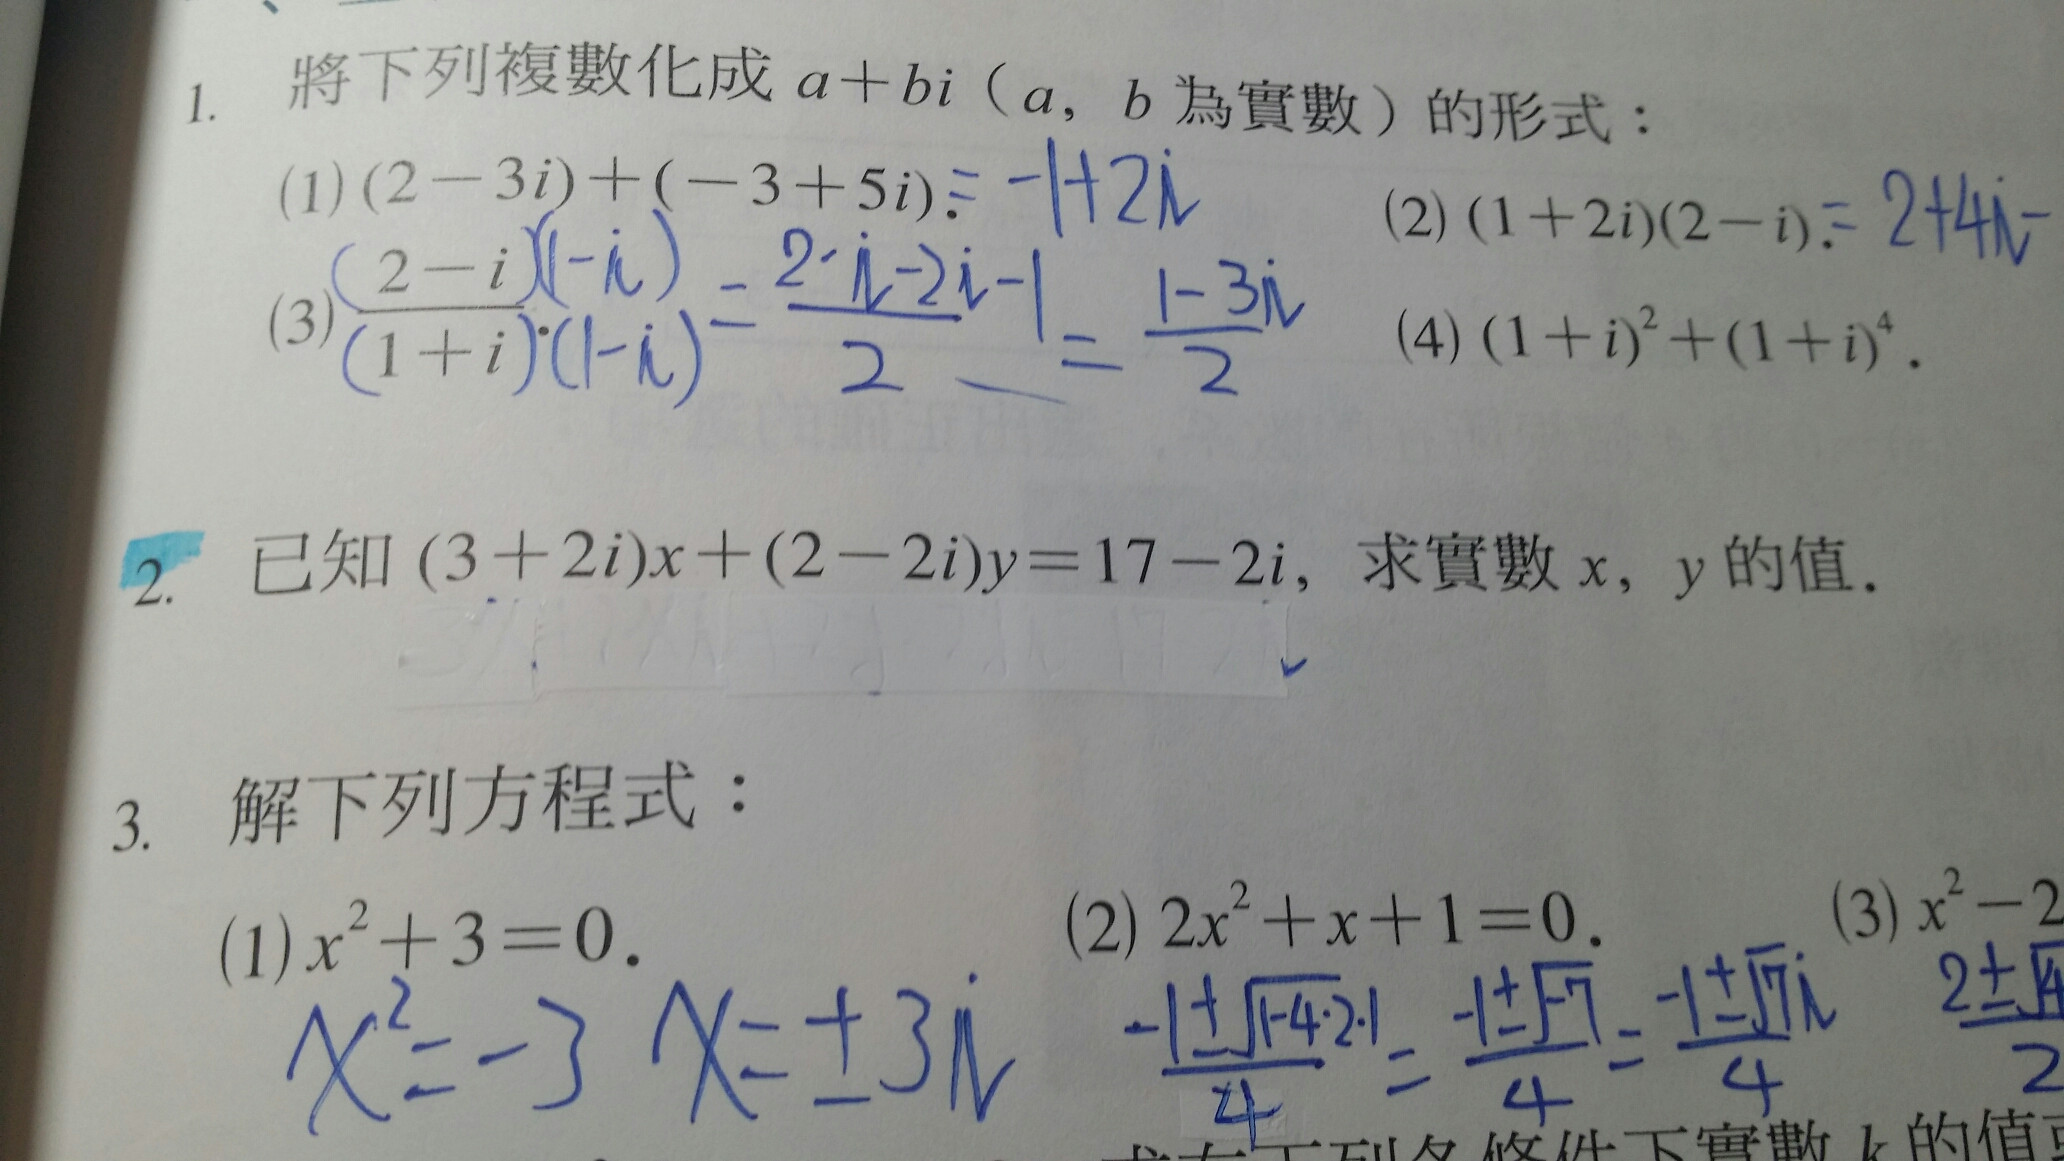 1. 將下列複數化成 a+bi（a，b 為實數）的形式：
(1) (2-3i)+(-3+5i). = -1+2i
(2) (1+2i)(2-i). = 2+4i-
(3) (2-i)(1-i)/(1+i)·(1-i) = 2-i-2i-1/2 = 1-3i/2
(4) (1+i)²+(1+i)⁴.
2. 已知 (3+2i)x+(2-2i)y=17-2i，求實數 x，y 的值.
3. 解下列方程式：
(1) x²+3=0.
(2) 2x²+x+1=0.
(3) x²-2
x²=-3 x=±3i
-1±√1-4·2·1/4 = -1±√-7/4 = -1±√7i/4
2±√4/2
下列各條件下實數 k 的值